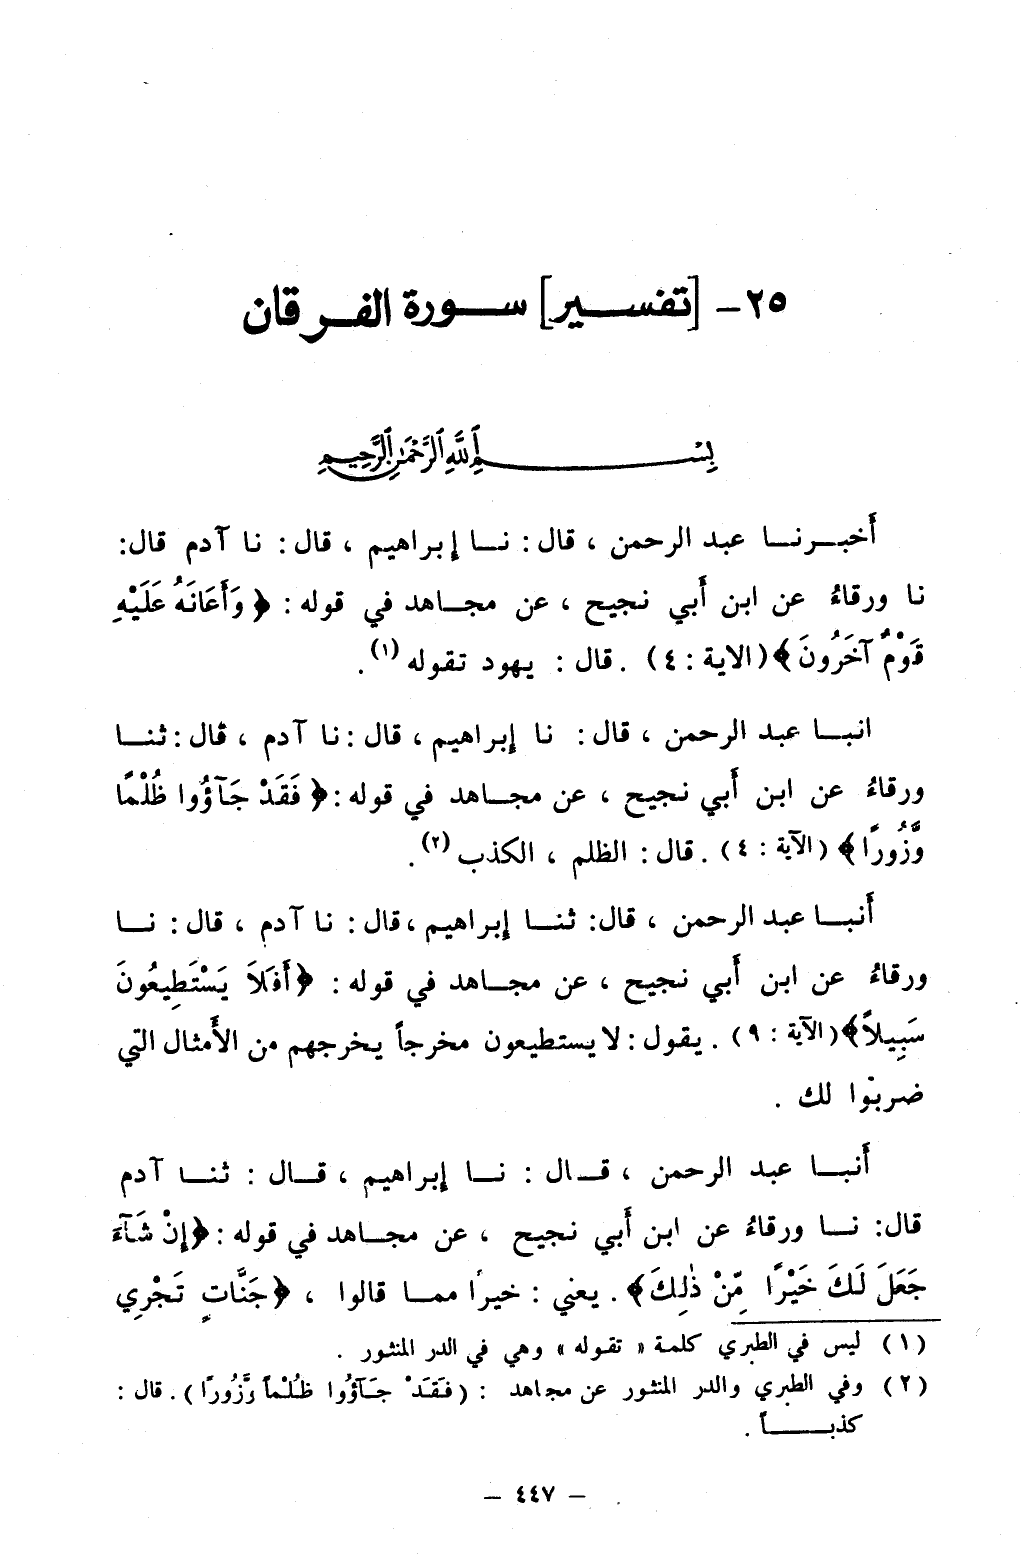 ٢٥ - [تفسير] سورة الفرقان
بِسْمِ اللَّهِ الرَّحْمَنِ الرَّحِيمِ
أَخبرنا عبد الرحمن ، قال : نا إبراهيم ، قال : نا آدم قال:
نا ورقاءُ عن ابن أَبي نجيح ، عن مجاهد في قوله : ﴿ وَأَعَانَهُ عَلَيْهِ
قَوْمٌ آخَرُونَ ﴾ (الاية : ٤) . قال : يهود تقوله (١) .
انبا عبد الرحمن ، قال : نا إبراهيم ، قال : نا آدم ، قال : ثنا
ورقاءُ عن ابن أَبي نجيح ، عن مجاهد في قوله : ﴿ فَقَدْ جَآؤُوا ظُلْمًا
وَّزُورًا ﴾ (الآية : ٤) . قال : الظلم ، الكذب (٢) .
أَنبا عبد الرحمن ، قال: ثنا إبراهيم ، قال : نا آدم ، قال : نا
ورقاءُ عن ابن أَبي نجيح ، عن مجاهد في قوله : ﴿ أَفَلاَ يَسْتَطِيعُونَ
سَبِيلاً ﴾ (الآية : ٩) . يقول : لا يستطيعون مخرجاً يخرجهم من الأَمثال التي
ضربوا لك .
أَنبا عبد الرحمن ، قال : نا إبراهيم ، قال : ثنا آدم
قال: نا ورقاءُ عن ابن أَبي نجيح ، عن مجاهد في قوله : ﴿ إِنْ شَآءَ
جَعَلَ لَكَ خَيْرًا مِّنْ ذٰلِكَ ﴾ . يعني : خيرًا مما قالوا ، ﴿ جَنَّاتٍ تَجْرِي
(١) ليس في الطبري كلمة « تقوله » وهي في الدر المنثور .
(٢) وفي الطبري والدر المنثور عن مجاهد : ( فَقَدْ جَآؤُوا ظُلْماً وَّزُورًا ) . قال :
كذباً .
- ٤٤٧ -